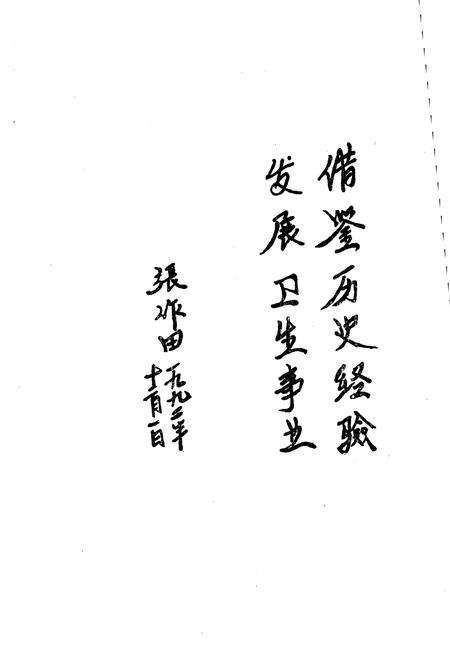 借鉴历史经驗
发展卫生事业
張作田
一九九二年
十二月一日